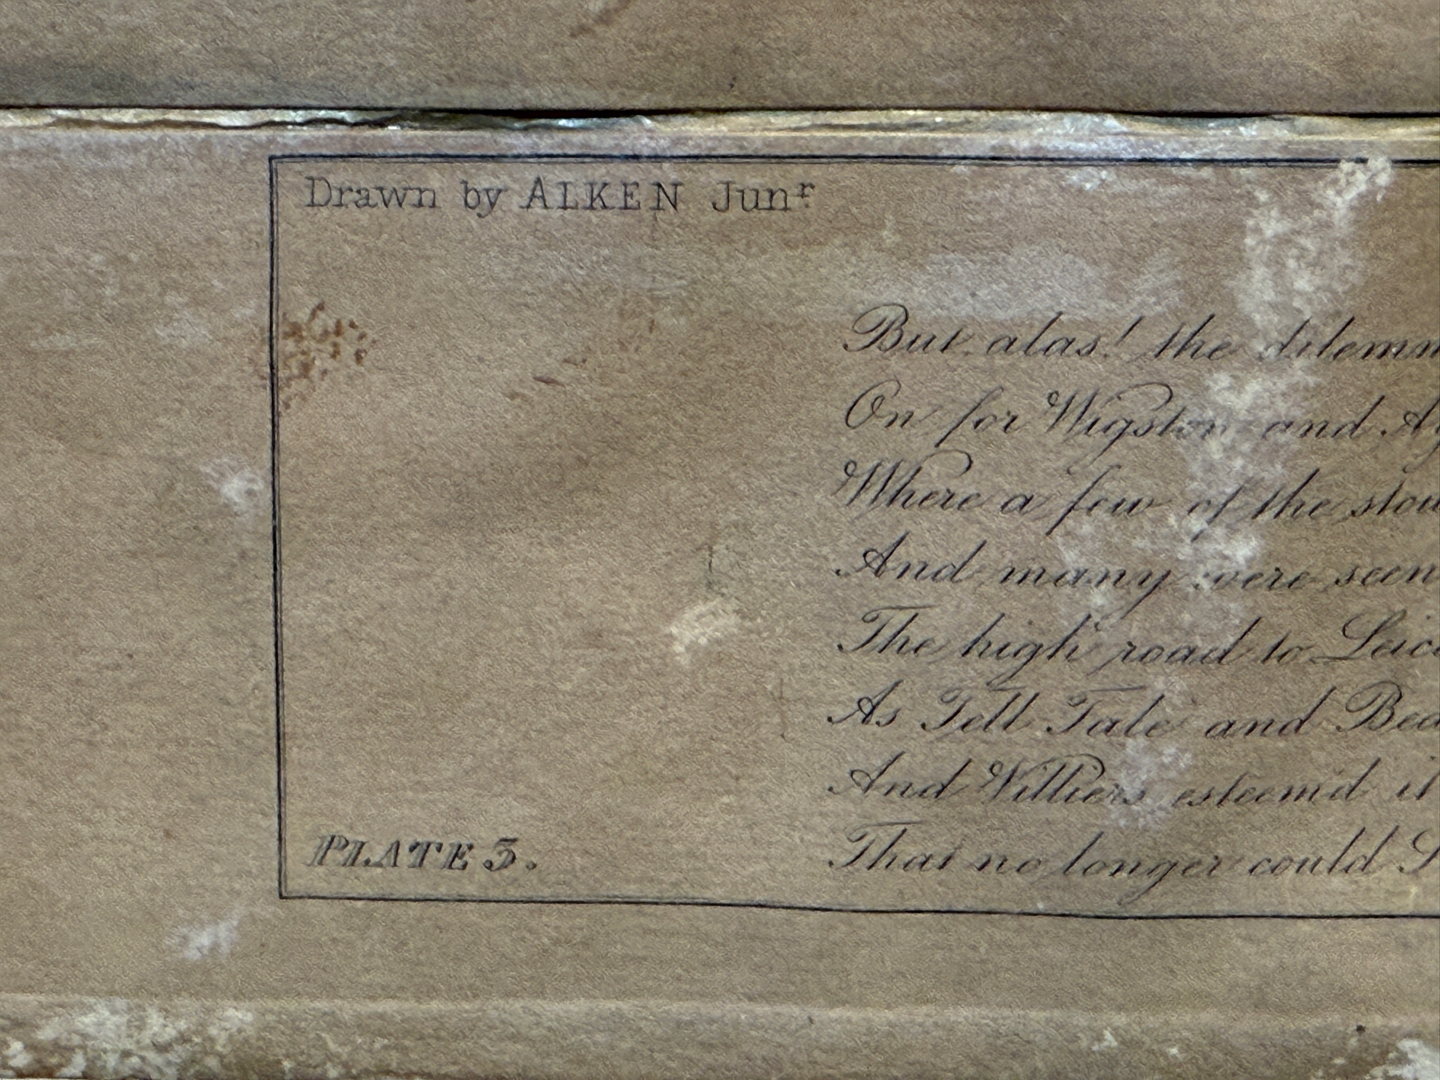 Drawn by ALKEN Junʳ
But alas! the dilemm
On for Wigston and Ay
Where a few of the stou
And many were seen
The high road to Leice
As Tell Tale and Bea
And Villiers esteem'd it
That no longer could S
PLATE 3.